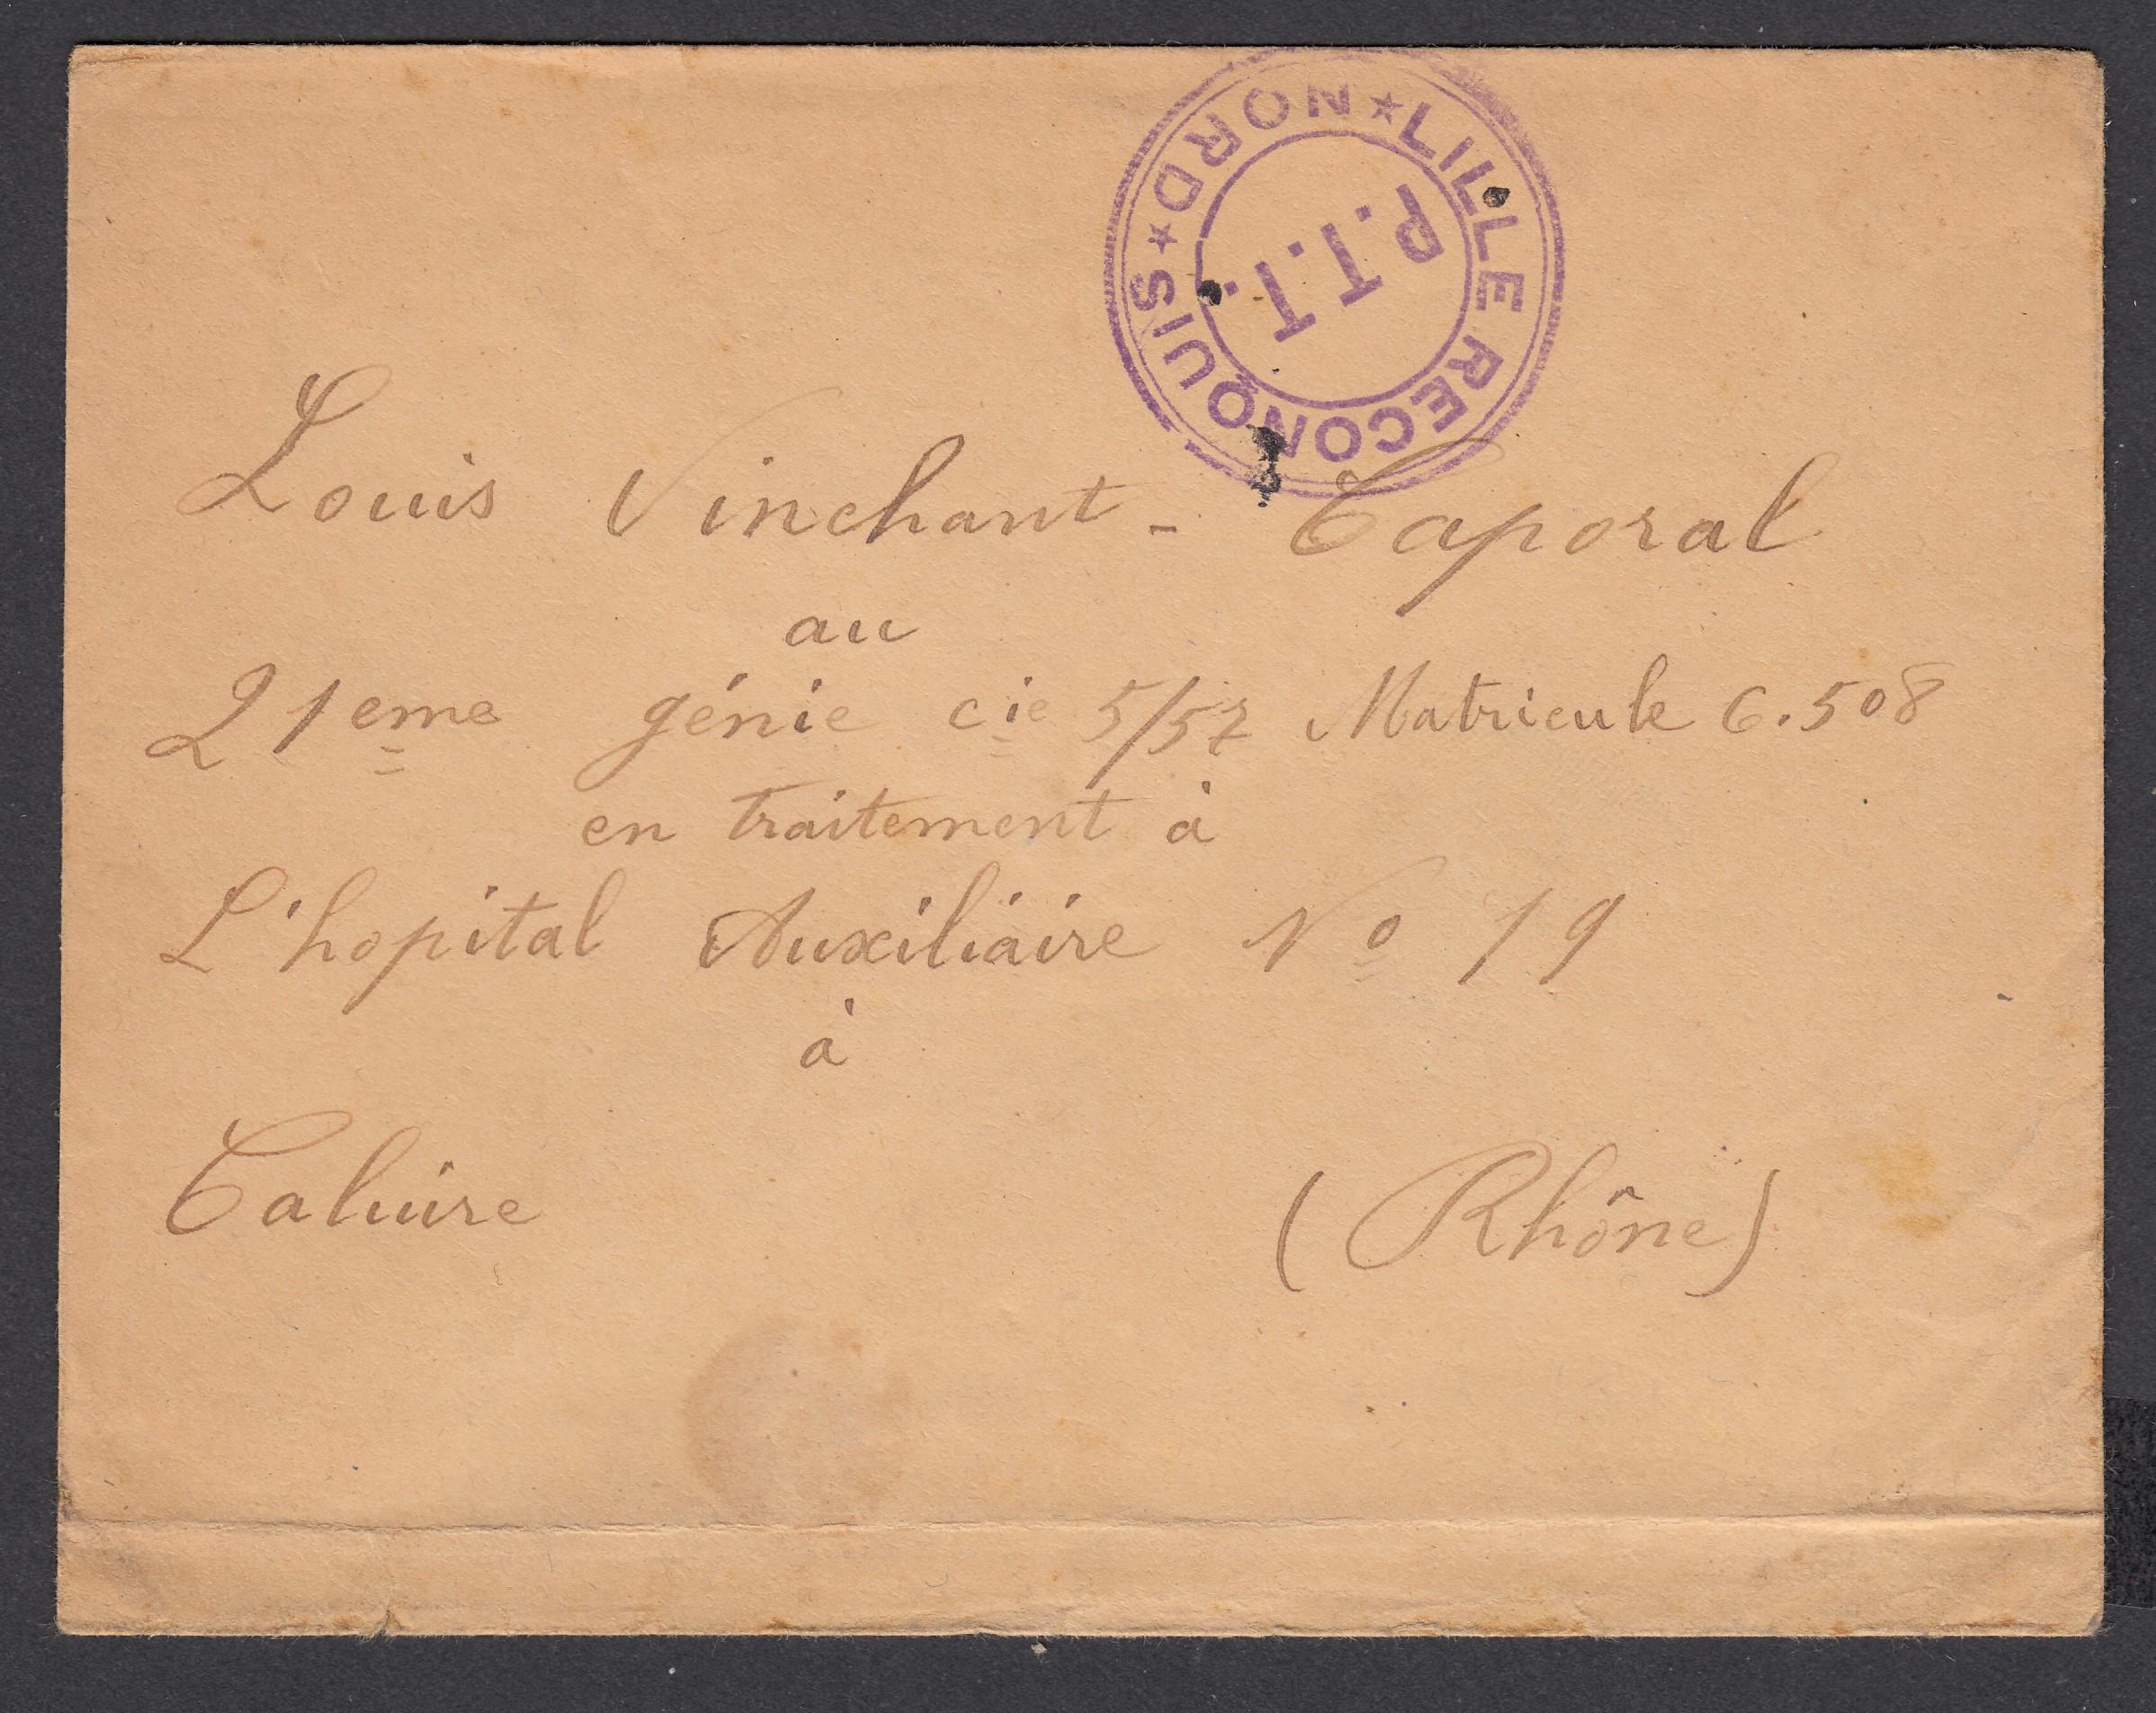 LILLE RECONQUIS ★ NORD ★
P.T.T.
Louis Vinchant - Caporal
au
21eme génie cie 5/57 Matricule 6.508
en traitement à
L'hopital Auxiliaire No 19
à
Caluire (Rhône)